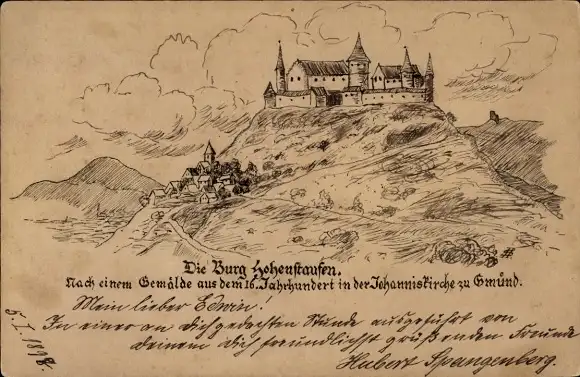 Die Burg Hohenstaufen.
Nach einem Gemälde aus dem 16. Jahrhundert in der Johanniskirche zu Gmünd.
Mein lieber Edwin!
In einer an dich gedachten Stunde ausgeführt von
Deinem dich freundlichst grüßenden Freunde
Hubert Spangenberg.
5. I. 1898.